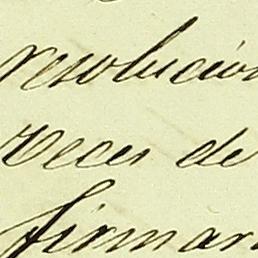 resolucion
veces de
firmar